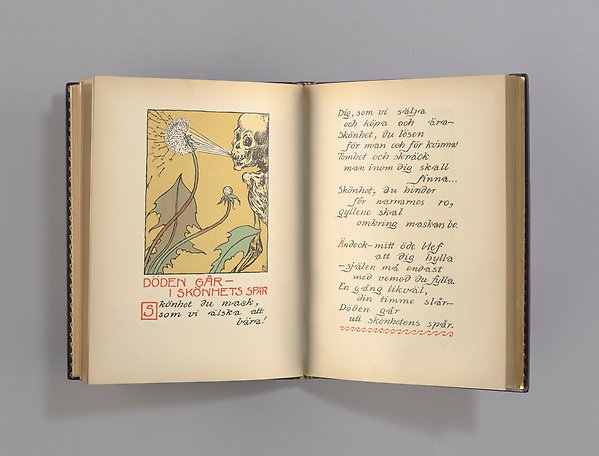 DÖDEN GÅR—
I SKÖNHETS SPÅR
Skönhet du mask,
som vi älska att
bära!
Dig, som vi sälja
och köpa och ära—
Skönhet, du lösen
för man och för kvinna!
Tomhet och skräck
man inom dig skall
finna...
Skönhet, du hinder
för narrarnes ro,
gyllene skal
omkring maskan bo.
Ändock—mitt öde blef
att dig hylla
—själen må endast
med vemod du fylla
En gång likväl,
din timme slår—
Döden går
uti skönhetens spår.